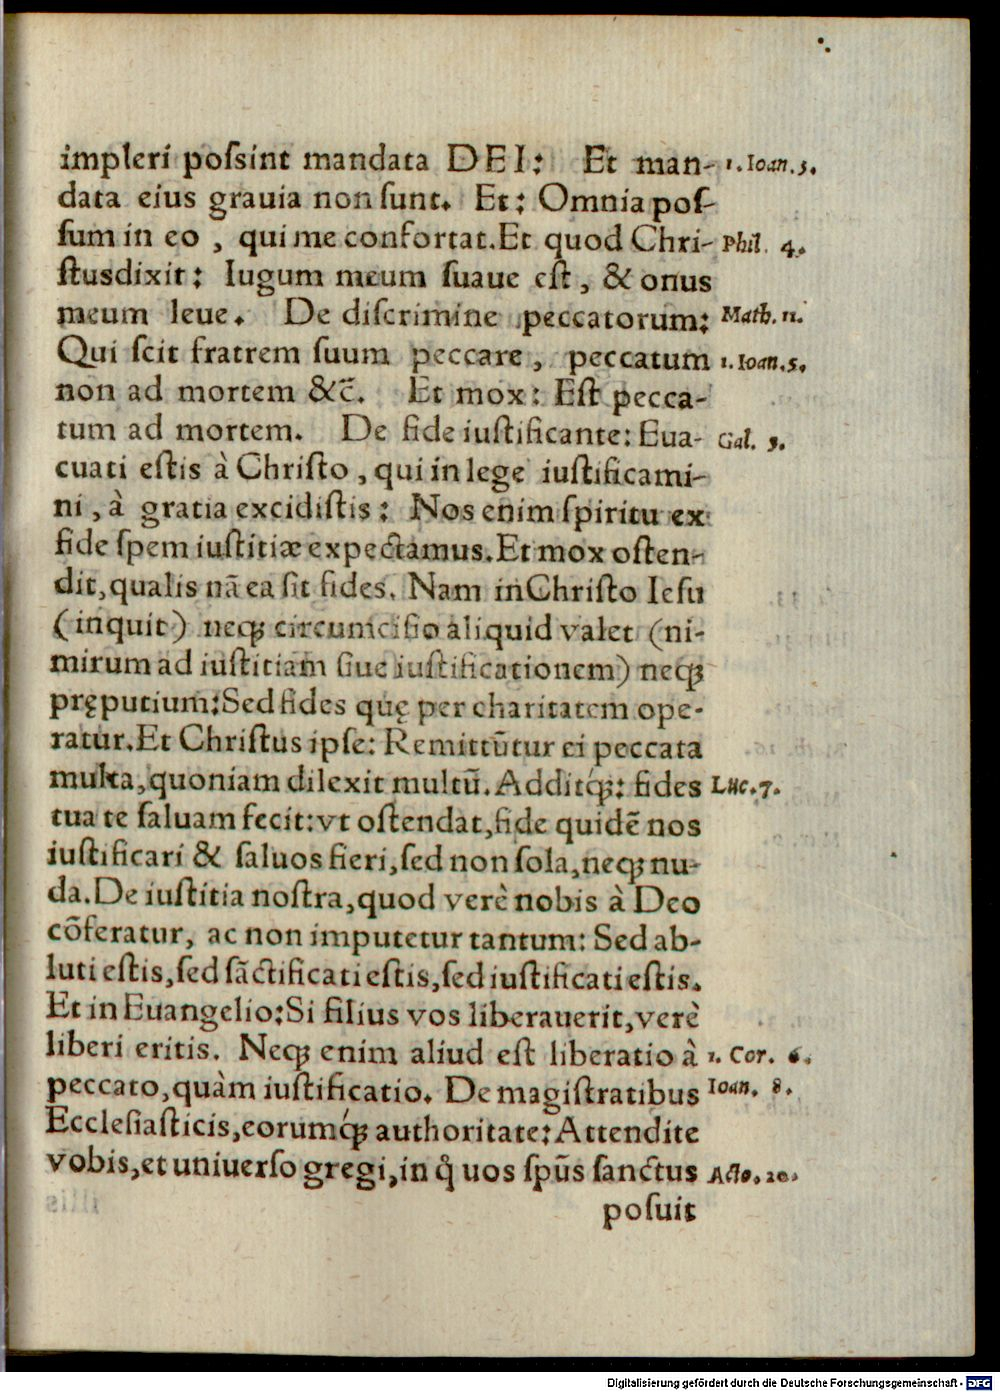 impleri poſsint mandata DEI: Et man- 1. Ioan. 5.
data eius grauia non ſunt. Et: Omnia poſ-
ſum in eo, qui me confortat. Et quod Chri- Phil. 4.
ſtus dixit: Iugum meum ſuaue eſt, & onus
meum leue. De diſcrimine peccatorum: Math. 11.
Qui ſcit fratrem ſuum peccare, peccatum 1. Ioan. 5.
non ad mortem &c̄. Et mox: Eſt pecca-
tum ad mortem. De fide iuſtificante: Eua- Gal. 5.
cuati eſtis à Chriſto, qui in lege iuſtificami-
ni, à gratia excidiſtis: Nos enim ſpiritu ex
fide ſpem iuſtitiæ expectamus. Et mox oſten-
dit, qualis nā ea ſit fides. Nam in Chriſto Ieſu
(inquit) neqꝫ circumciſio aliquid valet (ni-
mirum ad iuſtitiam ſiue iuſtificationem) neqꝫ
pręputium: Sed fides quę per charitatem ope-
ratur. Et Chriſtus ipſe: Remittūtur ei peccata
multa, quoniam dilexit multū. Additq́ꝫ: fides Luc. 7.
tua te ſaluam fecit: vt oſtendat, fide quidē nos
iuſtificari & ſaluos fieri, ſed non ſola, neqꝫ nu-
da. De iuſtitia noſtra, quod verè nobis à Deo
cōferatur, ac non imputetur tantum: Sed ab-
luti eſtis, ſed ſāctificati eſtis, ſed iuſtificati eſtis.
Et in Euangelio: Si filius vos liberauerit, verè
liberi eritis. Neqꝫ enim aliud eſt liberatio à 1. Cor. 6.
peccato, quàm iuſtificatio. De magiſtratibus Ioan. 8.
Eccleſiaſticis, eorumq́ꝫ authoritate: Attendite
vobis, et uniuerſo gregi, in q̊ uos ſpūs ſanctus Acto. 20.
poſuit
Digitalisierung gefördert durch die Deutsche Forschungsgemeinschaft - DFG